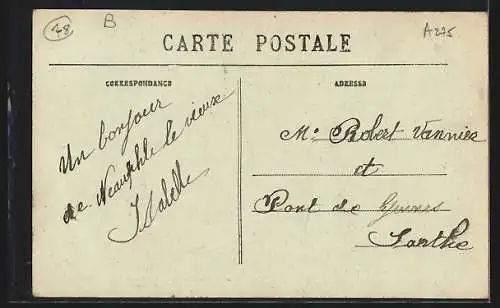 48
B
A275
CARTE POSTALE
CORRESPONDANCE
ADRESSE
Un bonjour
de Neauphle le vieux
Isabelle
Mr Robert Vannier
et
Pont de Gennes
Sarthe